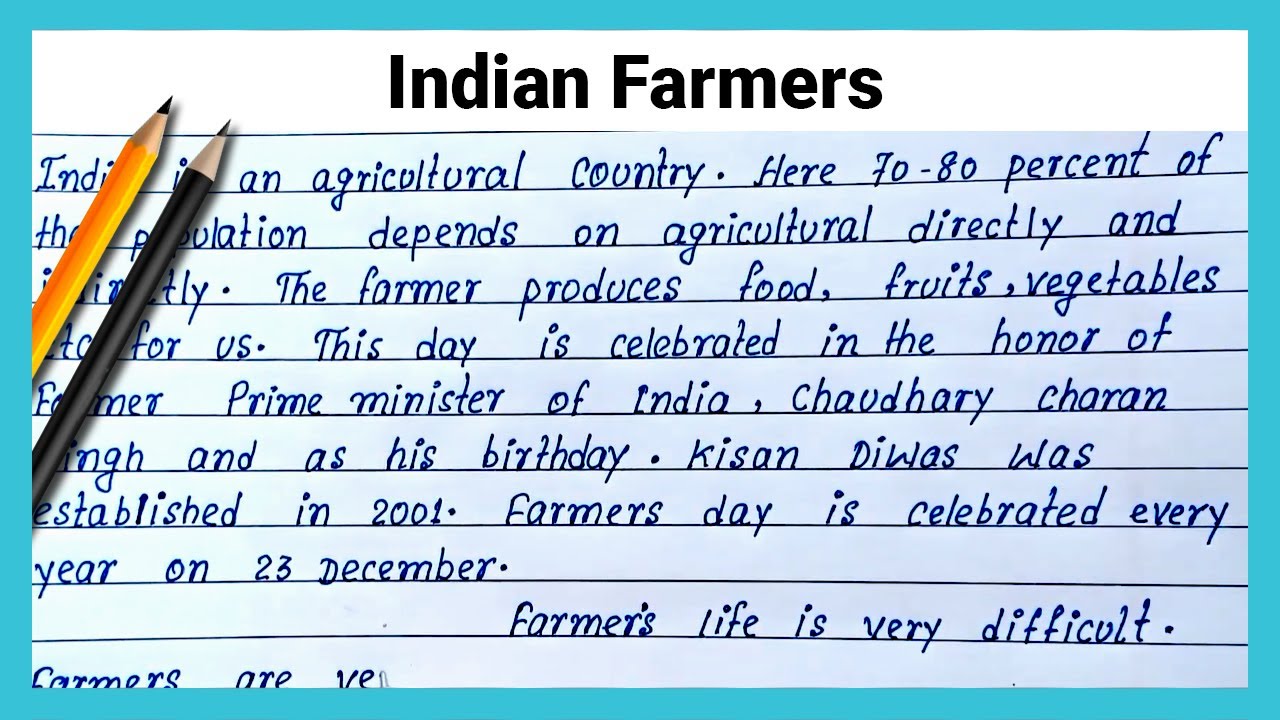 Indian Farmers
India is an agricultural country. Here 70-80 percent of
the population depends on agricultural directly and
indirectly. The farmer produces food, fruits, vegetables
etc for us. This day is celebrated in the honor of
Former Prime minister of India, Chaudhary charan
Singh and as his birthday. Kisan Diwas was
established in 2001. Farmers day is celebrated every
year on 23 December.
Farmer's life is very difficult.
Farmers are